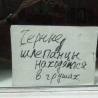 Теннис
шлепанцы
находятся
в грушах